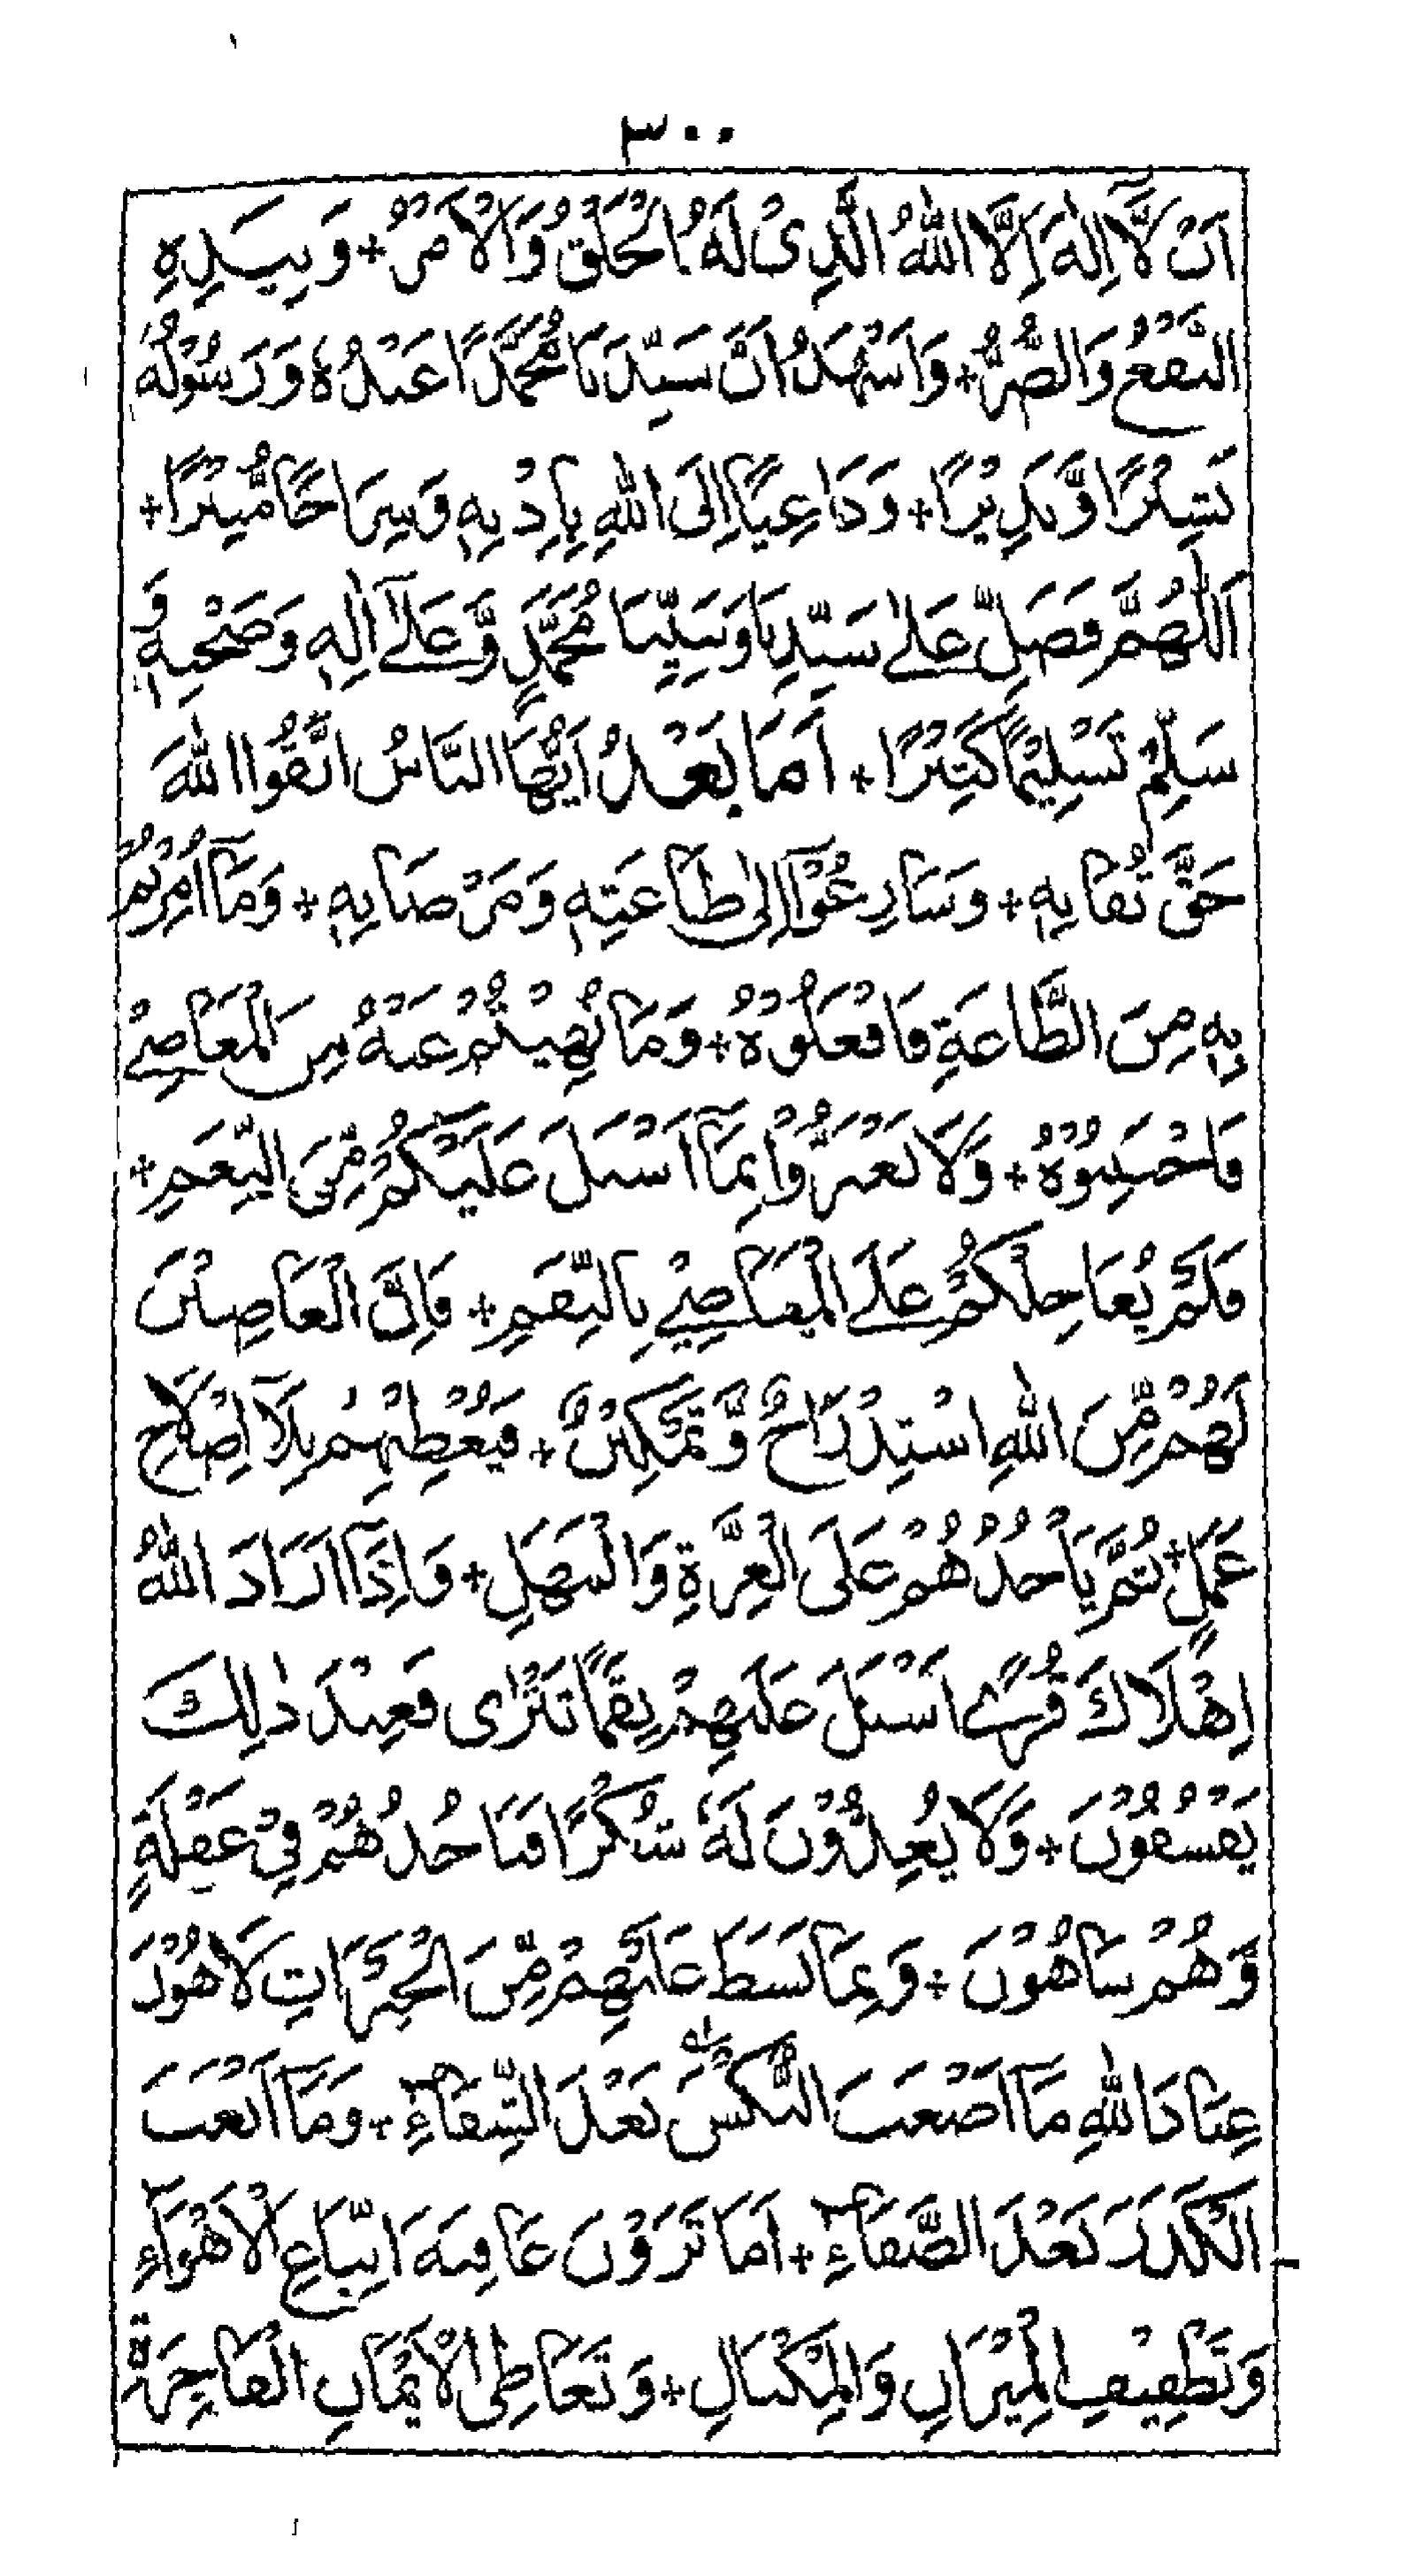 ٣٠٠
اَنْ لَّآ اِلٰهَ اِلَّا اللّٰهُ الَّذِىْ لَهُ الْخَلْقُ وَالْاَمْرُ + وَبِيَدِهِ
النَّفْعُ وَالضُّرُّ + وَاَشْهَدُ اَنَّ سَيِّدَنَا مُحَمَّدًا عَبْدُهٗ وَرَسُوْلُهٗ
بَشِيْرًا وَّنَذِيْرًا + وَدَاعِيًا اِلَى اللّٰهِ بِاِذْنِهٖ وَسِرَاجًا مُّنِيْرًا +
اَللّٰهُمَّ فَصَلِّ عَلٰى سَيِّدِنَا وَنَبِيِّنَا مُحَمَّدٍ وَّعَلٰٓى اٰلِهٖ وَصَحْبِهٖ وَ
سَلِّمْ تَسْلِيْمًا كَثِيْرًا + اَمَا بَعْدُ اَيُّهَا النَّاسُ اتَّقُوا اللّٰهَ
حَقَّ تُقَاتِهٖ + وَسَارِعُوْآ اِلٰى طَاعَتِهٖ وَمَرْضَاتِهٖ + وَمَآ اُمِرْتُمْ
بِهٖ مِنَ الطَّاعَةِ فَافْعَلُوْهُ + وَمَا نُهِيْتُمْ عَنْهُ مِنَ الْمَعَاصِىْ
فَاحْسِبُوْهُ + وَلَا تَغْتَرُّوْا بِمَآ اَسْبَلَ عَلَيْكُمْ مِّنَ النِّعَمِ +
فَلَمْ يُعَاجِلْكُمْ عَلَى الْمَعَاصِىْ بِالنِّقَمِ + فَاِنَّ الْعَاصِيْنَ
لَهُمْ مِّنَ اللّٰهِ اسْتِدْرَاجٌ وَّتَمْكِيْنٌ + فَيُعْطِيْهِمْ بِلَآ اِصْلَاحِ
عَمَلٍ + ثُمَّ يَاْخُذُهُمْ عَلَى الْغِرَّةِ وَالْمَهَلِ + وَاِذَآ اَرَادَ اللّٰهُ
اِهْلَاكَ قُرًى اَسْبَلَ عَلَيْهِمْ نِقَمًا تَتْرٰى فَعِنْدَ ذٰلِكَ
يَفْسُقُوْنَ + وَلَا يُعِدُّوْنَ لَهٗ شُكْرًا فَيَاْخُذُهُمْ فِىْ غَفْلَةٍ
وَّهُمْ سَاهُوْنَ + وَبِمَا بَسَطَ عَلَيْهِمْ مِّنَ الْخَيْرَاتِ لَاهُوْنَ
عِبَادَ اللّٰهِ مَآ اَصْعَبَ النُّكْسَ بَعْدَ الشِّفَآءِ + وَمَآ اَتْعَبَ
الْكَدَرَ بَعْدَ الصَّفَآءِ + اَمَا تَرَوْنَ عَاقِبَةَ اتِّبَاعِ الْاَهْوَآءِ
وَتَطْفِيْفِ الْمِيْزَانِ وَالْمِكْيَالِ + وَتَعَاطِى الْاَيْمَانِ الْفَاجِرَةِ